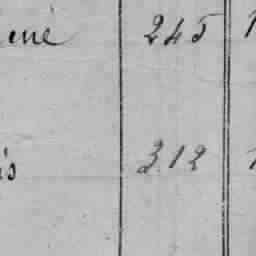 ené 245
is 312